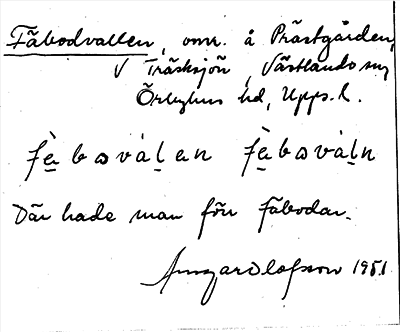 Fäbodvallen, omr. å Prästgården,
V Träsksjön, Västlands sn
Örbyhus hd, Upps. l.
fȅ̱bωvàḻen fȅ̱bωvàḻn
Där hade man förr fäbodar.
Ansgar Olofsson 1951